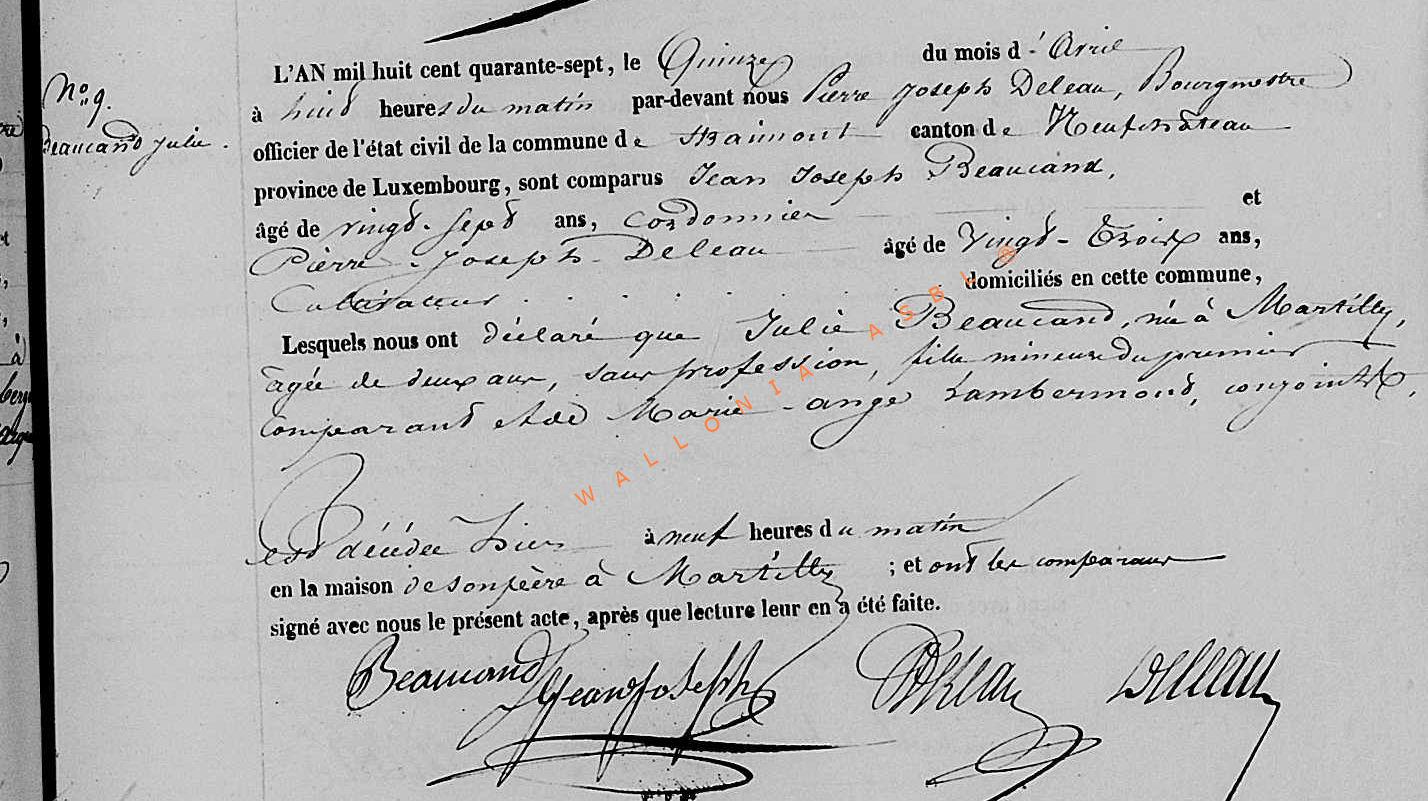 L'AN mil huit cent quarante-sept, le Quinze du mois d'Avril
No. 9.
Beaucand Julie.
à huit heures du matin par-devant nous Pierre Joseph Deleau, Bourgmestre
officier de l'état civil de la commune de Straimont canton de Neufchâteau
province de Luxembourg, sont comparus Jean Joseph Beaucand,
âgé de vingt-sept ans, Cordonnier et
Pierre-Joseph-Deleau âgé de Vingt-Trois ans,
Cultivateur domiciliés en cette commune,
Lesquels nous ont déclaré que Julie Beaucand, née à Martilly,
agée de deux ans, sans profession, fille mineure du premier
comparant et de Marie-ange Lambermont, conjoints,
est décédée hier à neuf heures du matin
en la maison de son père à Martilly ; et ont les comparans
signé avec nous le présent acte, après que lecture leur en a été faite.
Beaucand Jean Joseph Deleau
WALLONIA ASBL ©